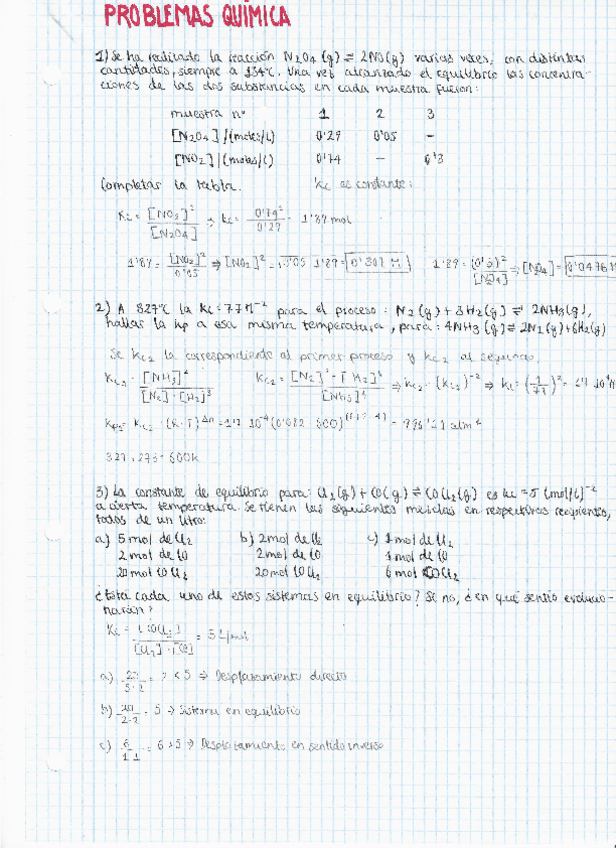 PROBLEMAS QUÍMICA
1) Se ha realizado la reacción N2O4 (g) ⇌ 2NO(g) varias veces, con distintas
cantidades, siempre a 134ºC. Una vez alcanzado el equilibrio las concentra-
ciones de las dos substancias en cada muestra fueron:
muestra nº 1 2 3
[N2O4] / (moles/L) 0'29 0'05 –
[NO2] / (moles/L) 0'74 – 0'3
Completas la tabla. Kc es constante:
Kc = [NO2]² / [N2O4] ⇒ Kc = 0'74² / 0'29 = 1'89 mol
1'89 = [NO2]² / 0'05 ⇒ [NO2]² = √0'05 · 1'89 = 0'307 M 1'89 = (0'3)² / [N2O4] ⇒ [N2O4] = 0'0476 M
2) A 327ºC la Kc = 77 M⁻² para el proceso: N2(g) + 3H2(g) ⇌ 2NH3(g),
hallar la Kp a esa misma temperatura, para: 4NH3(g) ⇌ 2N2(g) + 6H2(g)
Se Kc1 la correspondiente al primer proceso y Kc2 al segundo,
Kc1 = [NH3]² / [N2] · [H2]³ Kc2 = [N2]² · [H2]⁶ / [NH3]⁴ ⇒ Kc2 = (Kc1)⁻² ⇒ Kc = (1/77)² = 1'7 · 10⁻⁴
Kp2 = Kc2 · (R · T)^Δn = 1'7 · 10⁻⁴ (0'082 · 600)
327 + 273 = 600K
3) La constante de equilibrio para: Cl2(g) + CO(g) ⇌ COCl2(g) es Kc = 5 (mol/L)⁻²
a cierta temperatura. Se tienen las siguientes mezclas en respectivos recipientes,
todos de un litro:
a) 5 mol de Cl2 b) 2 mol de Cl2 c) 1 mol de Cl2
2 mol de CO 2 mol de CO 1 mol de CO
20 mol COCl2 20 mol COCl2 6 mol COCl2
¿Está cada uno de estos sistemas en equilibrio? Si no, ¿en qué sentido evolucio-
narán?
Kc = [COCl2] / [Cl2] · [CO] = 5 L/mol
a) 20 / 5·2 = 2 < 5 ⇒ Desplazamiento directo
b) 20 / 2·2 = 5 ⇒ Sistema en equilibrio
c) 6 / 1·1 = 6 > 5 ⇒ Desplazamiento en sentido inverso